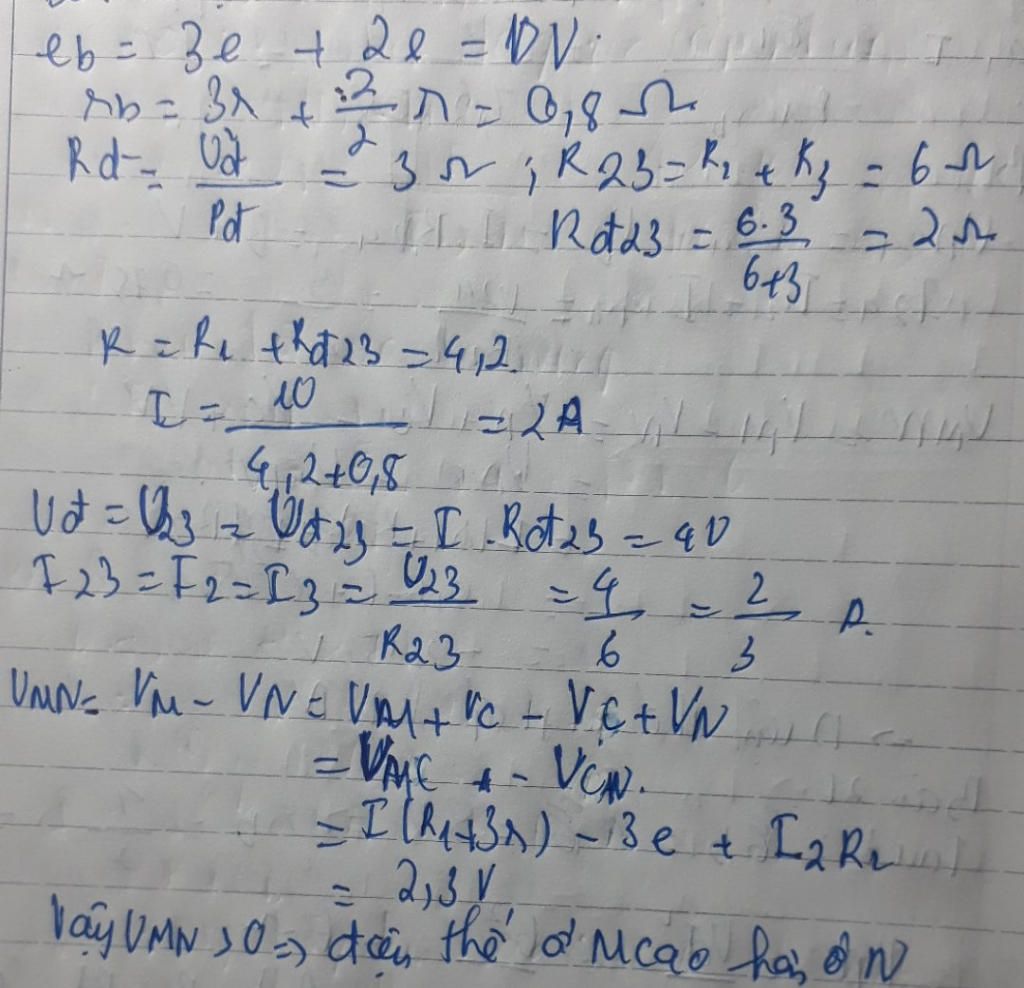 eb = 3e + 2e = 10V.
rb = 3r + 2/2 r = 0,8 Ω
Rđ = Uđ/Pđ = 3 Ω ; R23 = R2 + R3 = 6 Ω
Rđ23 = 6.3/6+3 = 2 Ω
R = R1 + Rđ23 = 4,2.
I = 10/4,2+0,8 = 2A
Uđ = U23 = Uđ23 = I.Rđ23 = 4V
I23 = I2 = I3 = U23/R23 = 4/6 = 2/3 A.
UMN = VM - VN = VM + VC - VC + VN
= VMC + - VCN.
= I(R1+3r) - 3e + I2R2
= 2,3 V.
Vậy UMN > 0 => điện thế ở M cao hơn ở N